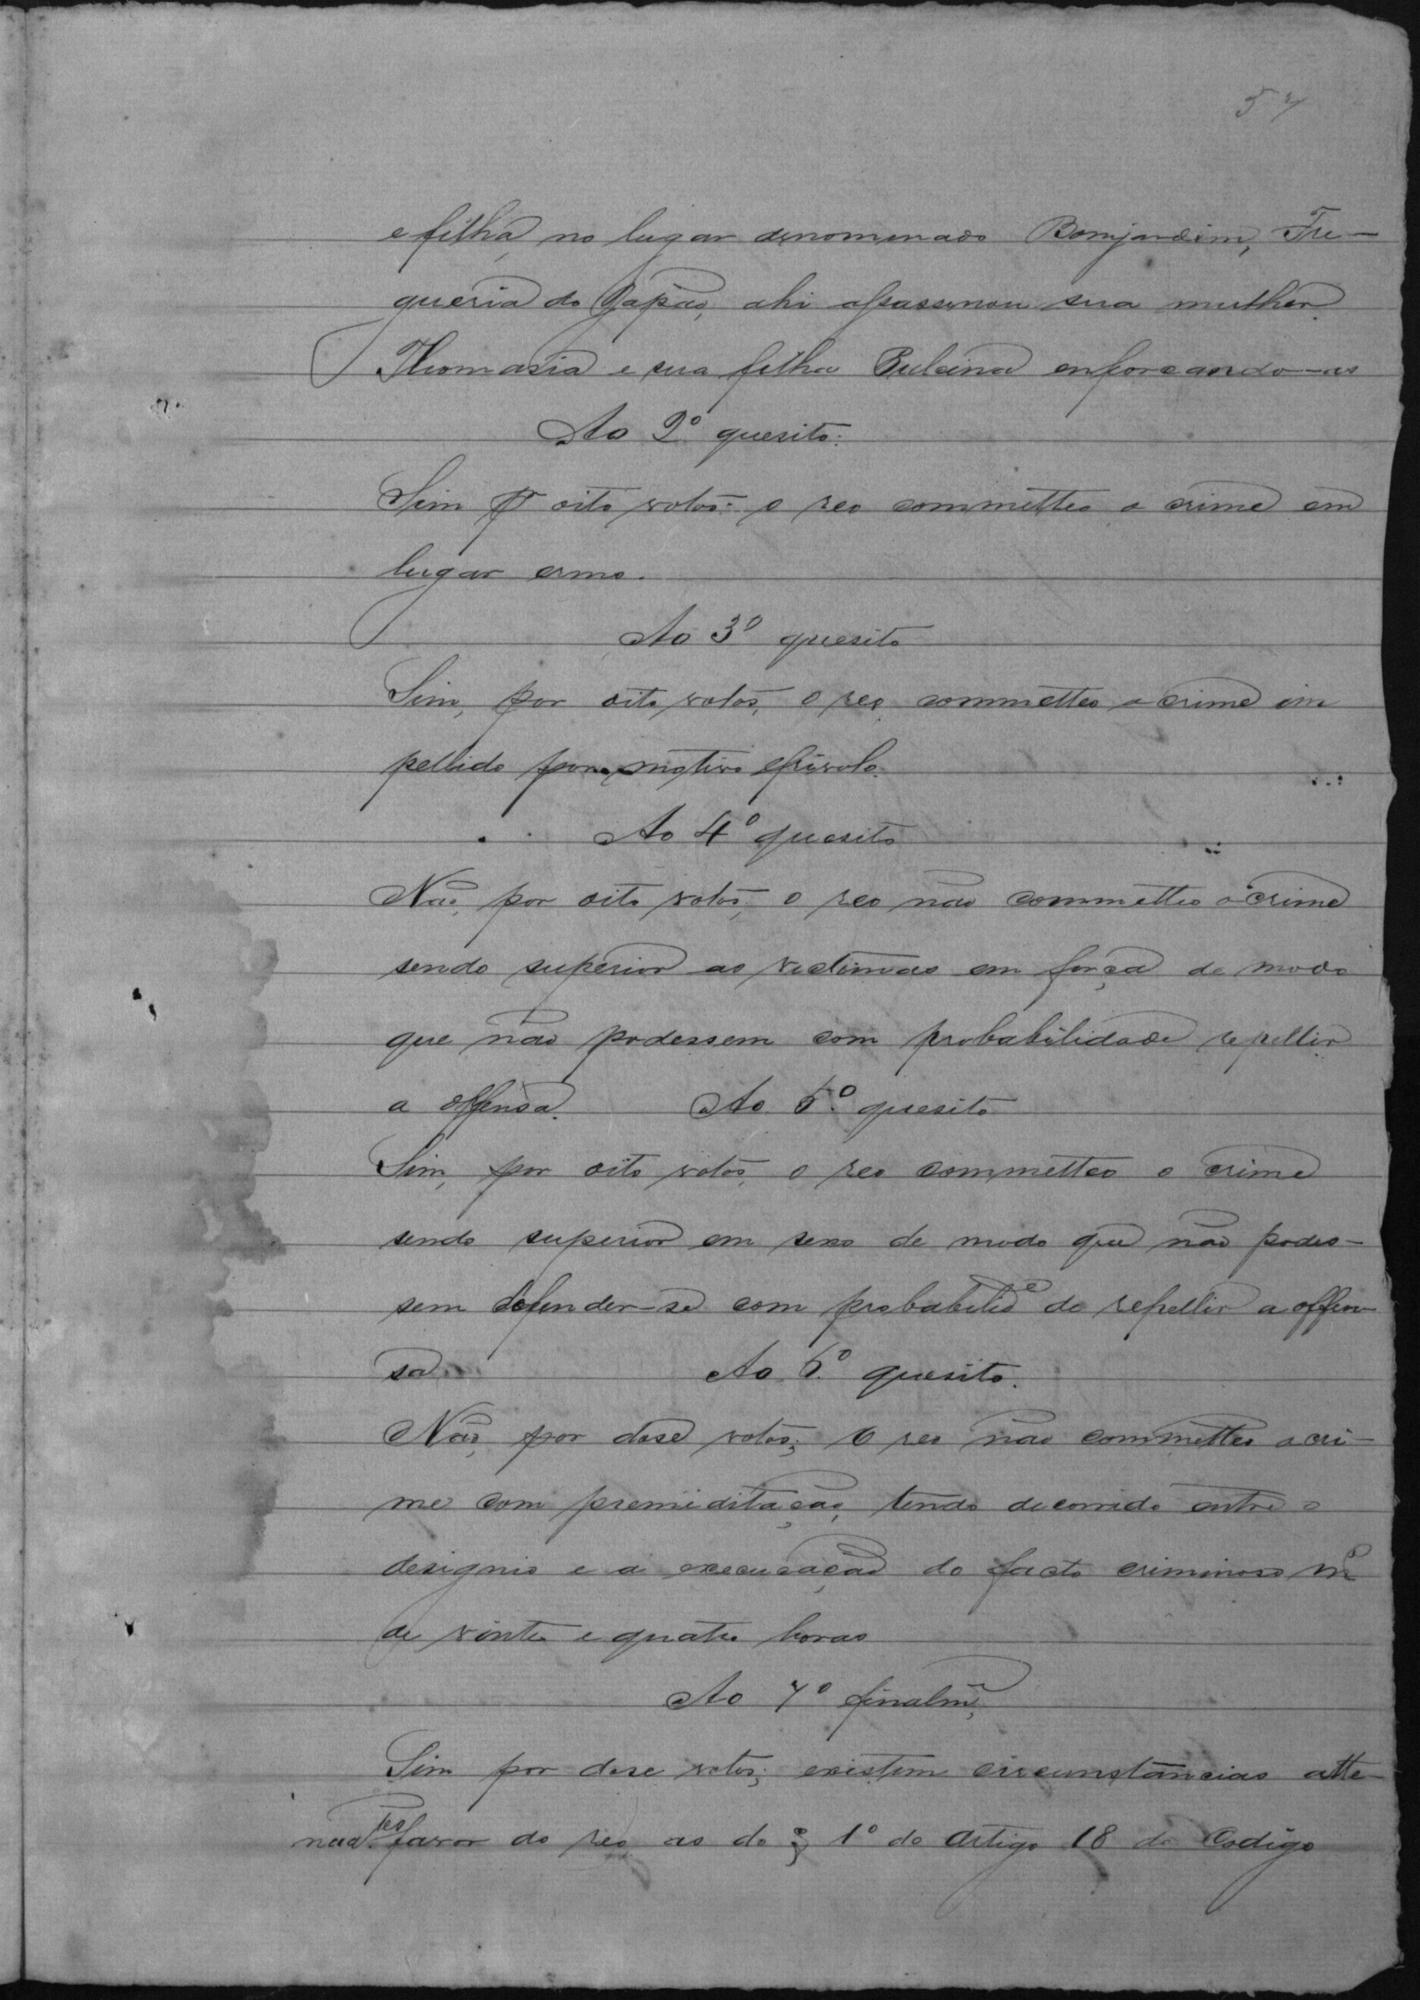 57
e filha, no lugar denominado Bomjardim, Fre-
gueria do Japão, ahi assassinou sua mulher
Thomasia e sua filha enforcando-as
Ao 2º quesito:
Sim pr oito votos: o reo committeo o crime em
lugar ermo.
Ao 3º quesito
Sim, por oito votos, o reo committeo o crime im
pellido por motivo frivolo.
Ao 4º quesito
Não, por oito votos, o reo não committeo o crime
sendo superior as victimas em força de modo
que não podessem com probabilidade repellir
a offensa. Ao 5º quesito
Sim, por oito votos, o reo committeo o crime
sendo superior em sexo de modo que não podes-
sem defender-se com probabilide de repellir a offen-
sa Ao 6º quesito.
Não, por dose votos; o reo não committeo o cri-
me com premiditação, tendo decorrido entre o
designio e a execucação do facto criminoso ms
de vinte e quatro horas
Ao 7º finalme,
Sim por dose votos; existem circunstancias atte-
nuates favor do reo as do § 1º do Artigo 18 do Codigo